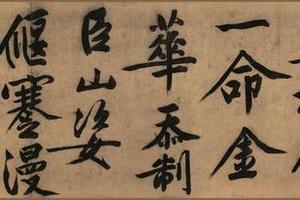 一命金
華忝制
臣山姿
偃蹇漫